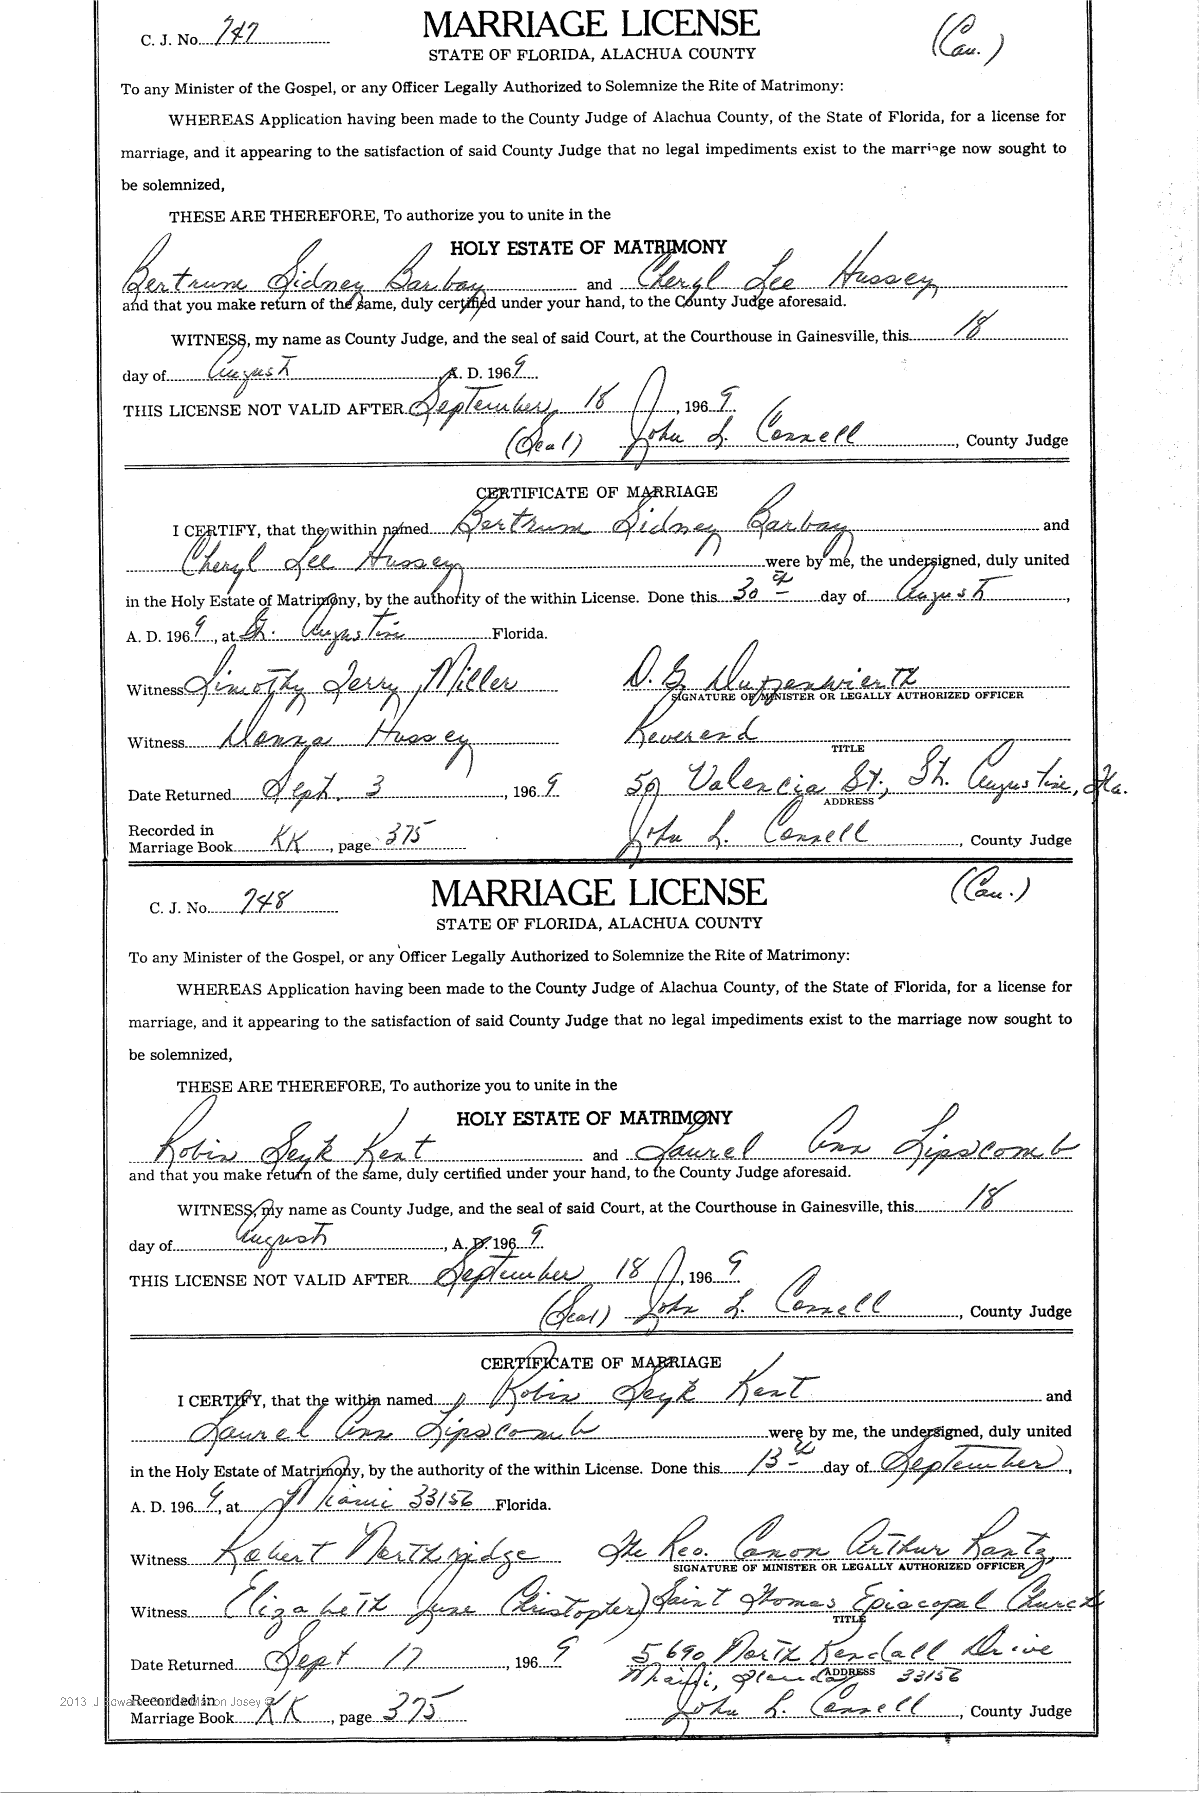 C. J. No. 747
MARRIAGE LICENSE
(Cau.)
STATE OF FLORIDA, ALACHUA COUNTY
To any Minister of the Gospel, or any Officer Legally Authorized to Solemnize the Rite of Matrimony:
WHEREAS Application having been made to the County Judge of Alachua County, of the State of Florida, for a license for
marriage, and it appearing to the satisfaction of said County Judge that no legal impediments exist to the marriage now sought to
be solemnized,
THESE ARE THEREFORE, To authorize you to unite in the
HOLY ESTATE OF MATRIMONY
Bertrum Sidney Barbay and Cheryl Lee Hussey
and that you make return of the same, duly certified under your hand, to the County Judge aforesaid.
WITNESS, my name as County Judge, and the seal of said Court, at the Courthouse in Gainesville, this 18
day of August A. D. 1969
THIS LICENSE NOT VALID AFTER September 18, 1969
(Seal) John L. Connell, County Judge
CERTIFICATE OF MARRIAGE
I CERTIFY, that the within named Bertrum Sidney Barbay and
Cheryl Lee Hussey were by me, the undersigned, duly united
in the Holy Estate of Matrimony, by the authority of the within License. Done this 30th day of August,
A. D. 1969, at St. Augustine Florida.
Witness Timothy Jerry Miller D. G.
SIGNATURE OF MINISTER OR LEGALLY AUTHORIZED OFFICER
Witness Donna Hussey Reverend
TITLE
Date Returned Sept. 3, 1969 50 Valencia St., St. Augustine, Fla.
ADDRESS
Recorded in
Marriage Book KK, page 375 John L. Connell, County Judge
C. J. No. 748
MARRIAGE LICENSE
(Cau.)
STATE OF FLORIDA, ALACHUA COUNTY
To any Minister of the Gospel, or any Officer Legally Authorized to Solemnize the Rite of Matrimony:
WHEREAS Application having been made to the County Judge of Alachua County, of the State of Florida, for a license for
marriage, and it appearing to the satisfaction of said County Judge that no legal impediments exist to the marriage now sought to
be solemnized,
THESE ARE THEREFORE, To authorize you to unite in the
HOLY ESTATE OF MATRIMONY
Robin Seyk Kent and Laurel Ann Lipscomb
and that you make return of the same, duly certified under your hand, to the County Judge aforesaid.
WITNESS, my name as County Judge, and the seal of said Court, at the Courthouse in Gainesville, this 18
day of August, A. D. 1969
THIS LICENSE NOT VALID AFTER September 18, 1969
(Seal) John L. Connell, County Judge
CERTIFICATE OF MARRIAGE
I CERTIFY, that the within named Robin Seyk Kent and
Laurel Ann Lipscomb were by me, the undersigned, duly united
in the Holy Estate of Matrimony, by the authority of the within License. Done this 13th day of September,
A. D. 1969, at Miami 33156 Florida.
Witness Robert Northridge The Rev. Canon Arthur Rantz,
SIGNATURE OF MINISTER OR LEGALLY AUTHORIZED OFFICER
Witness Elizabeth June Christopher Saint Thomas Episcopal Church
TITLE
Date Returned Sept 17, 1969 5690 North Kendall Drive
Miami, Florida 33156
ADDRESS
Recorded in
Marriage Book KK, page 375 John L. Connell, County Judge